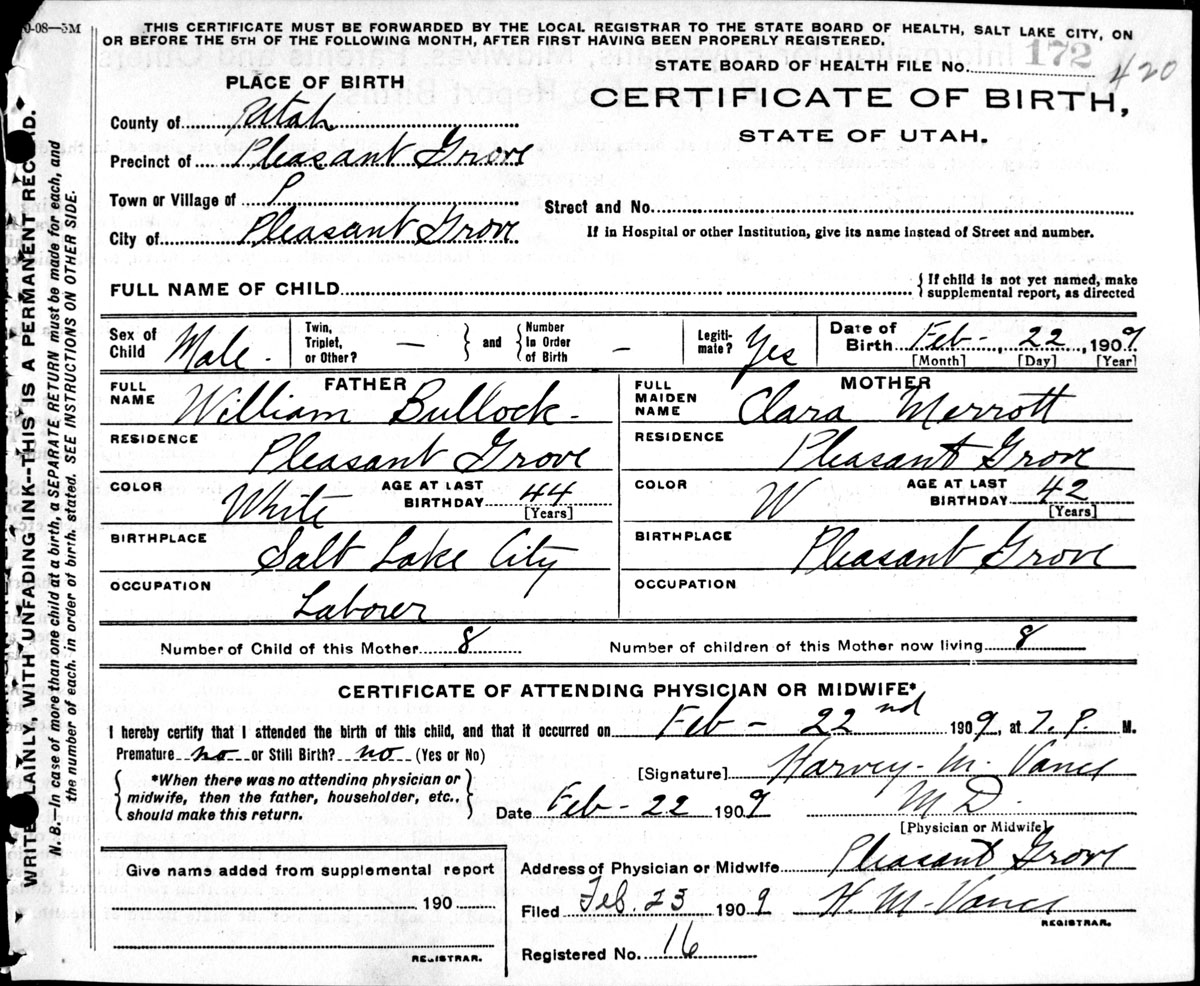 0-08—5M
THIS CERTIFICATE MUST BE FORWARDED BY THE LOCAL REGISTRAR TO THE STATE BOARD OF HEALTH, SALT LAKE CITY, ON
OR BEFORE THE 5TH OF THE FOLLOWING MONTH, AFTER FIRST HAVING BEEN PROPERLY REGISTERED.
STATE BOARD OF HEALTH FILE No. 172 420
PLACE OF BIRTH
CERTIFICATE OF BIRTH,
STATE OF UTAH.
County of Utah
Precinct of Pleasant Grove
Town or Village of P
Street and No.
City of Pleasant Grove
If in Hospital or other Institution, give its name instead of Street and number.
FULL NAME OF CHILD
{ If child is not yet named, make
supplemental report, as directed
Sex of Child Male. Twin, Triplet, or Other? — } and { Number In Order of Birth – Legiti-mate? Yes Date of Birth Feb-, 22, 1909
[Month] [Day] [Year]
FATHER MOTHER
FULL NAME William Bullock- FULL MAIDEN NAME Clara Merrott
RESIDENCE Pleasant Grove RESIDENCE Pleasant Grove
COLOR White AGE AT LAST BIRTHDAY 44 [Years] COLOR W AGE AT LAST BIRTHDAY 42 [Years]
BIRTHPLACE Salt Lake City BIRTHPLACE Pleasant Grove
OCCUPATION Laborer OCCUPATION
Number of Child of this Mother 8 Number of children of this Mother now living 8
CERTIFICATE OF ATTENDING PHYSICIAN OR MIDWIFE*
I hereby certify that I attended the birth of this child, and that it occurred on Feb - 22nd 1909, at 7. P. M.
Premature no or Still Birth? no (Yes or No)
[Signature] Harvey- M. Vance
{ *When there was no attending physician or
midwife, then the father, householder, etc.,
should make this return. }
Date Feb - 22 1909 M D.
[Physician or Midwife]
Give name added from supplemental report
190
REGISTRAR.
Address of Physician or Midwife Pleasant Grove
Filed Feb. 23 1909 H. M. Vance
REGISTRAR.
Registered No. 16
WRITE LAINLY, WITH UNFADING INK--THIS IS A PERMANENT REC D.
N. B.—In case of more than one child at a birth, a SEPARATE RETURN must be made for each, and
the number of each. in order of birth. stated. SEE INSTRUCTIONS ON OTHER SIDE.